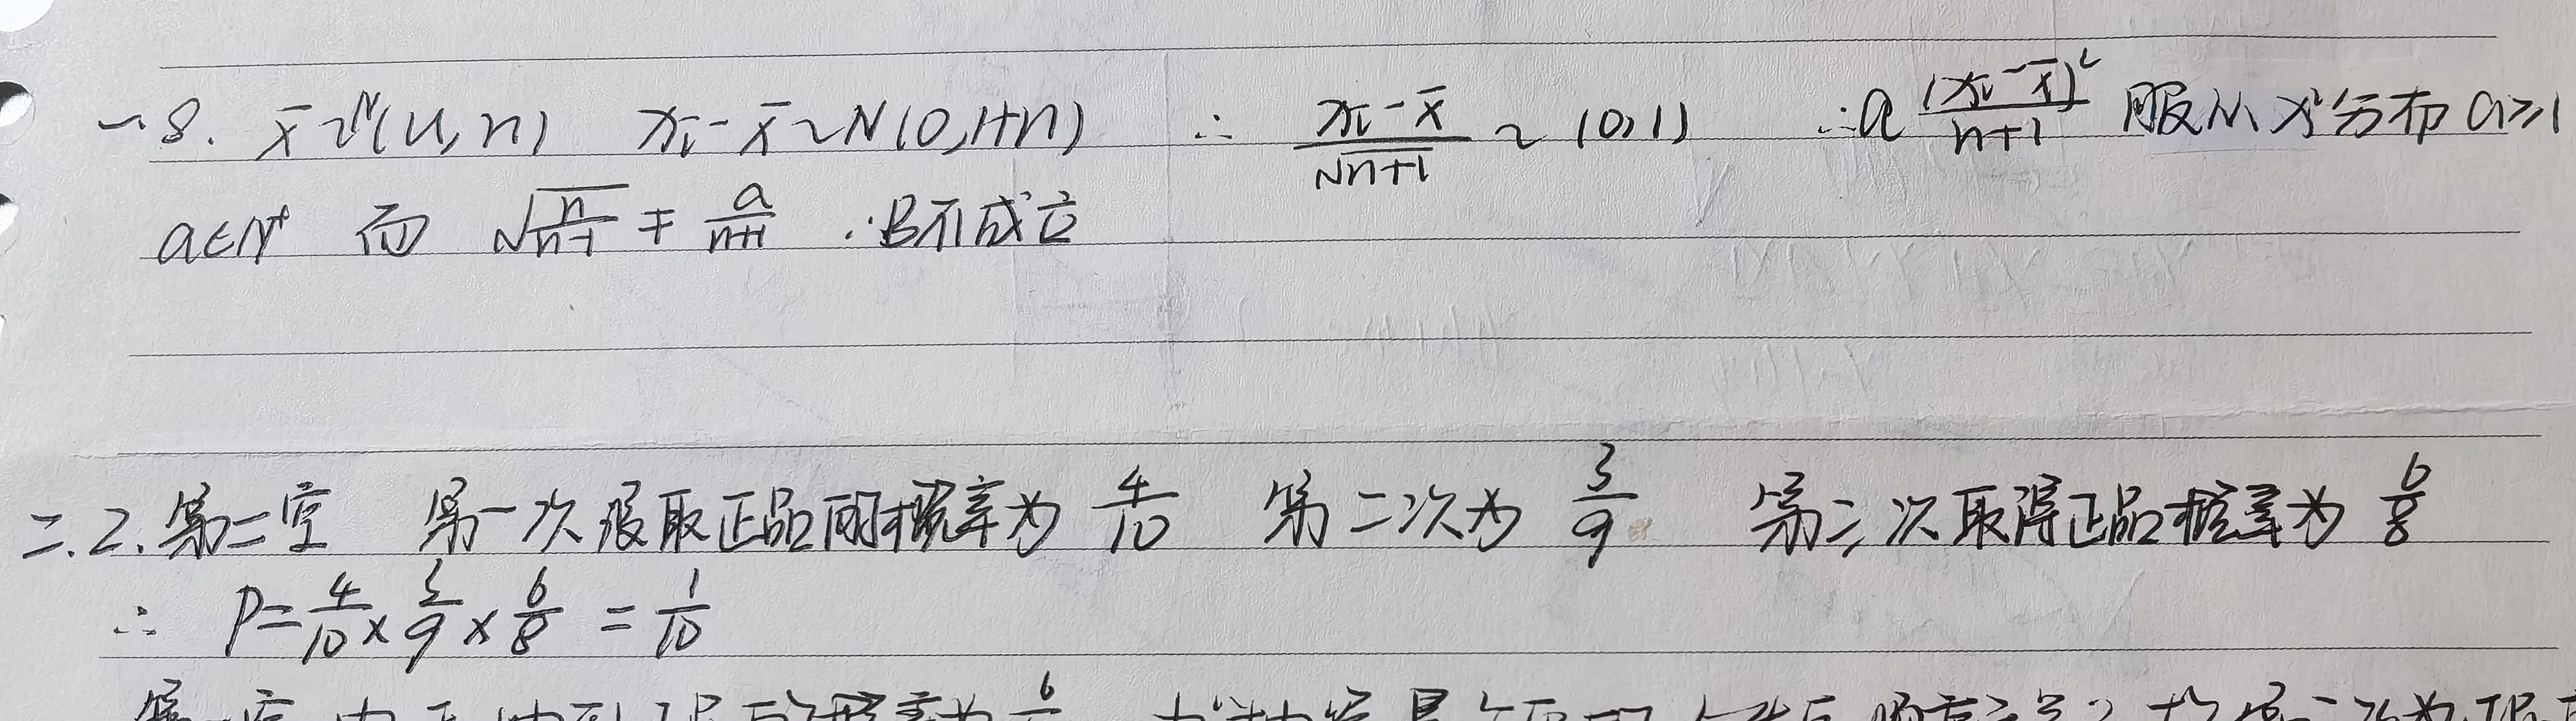 一.8. x̄~N(u,n) xᵢ-x̄~N(0,1+n) ∴ (xᵢ-x̄)/√(n+1) ~ (0,1) ∴a (xᵢ-x̄)²/(n+1) 服从 x²分布 a≥1
a∈N⁺ 而 √(n/(n-1)) ≠ a/(n+1) ∴B不成立
二.2.第二空 第一次 取正品的概率为 4/10 第二次为 3/9 第三次取得正品概率为 6/8
∴ P=4/10×3/9×6/8=1/10